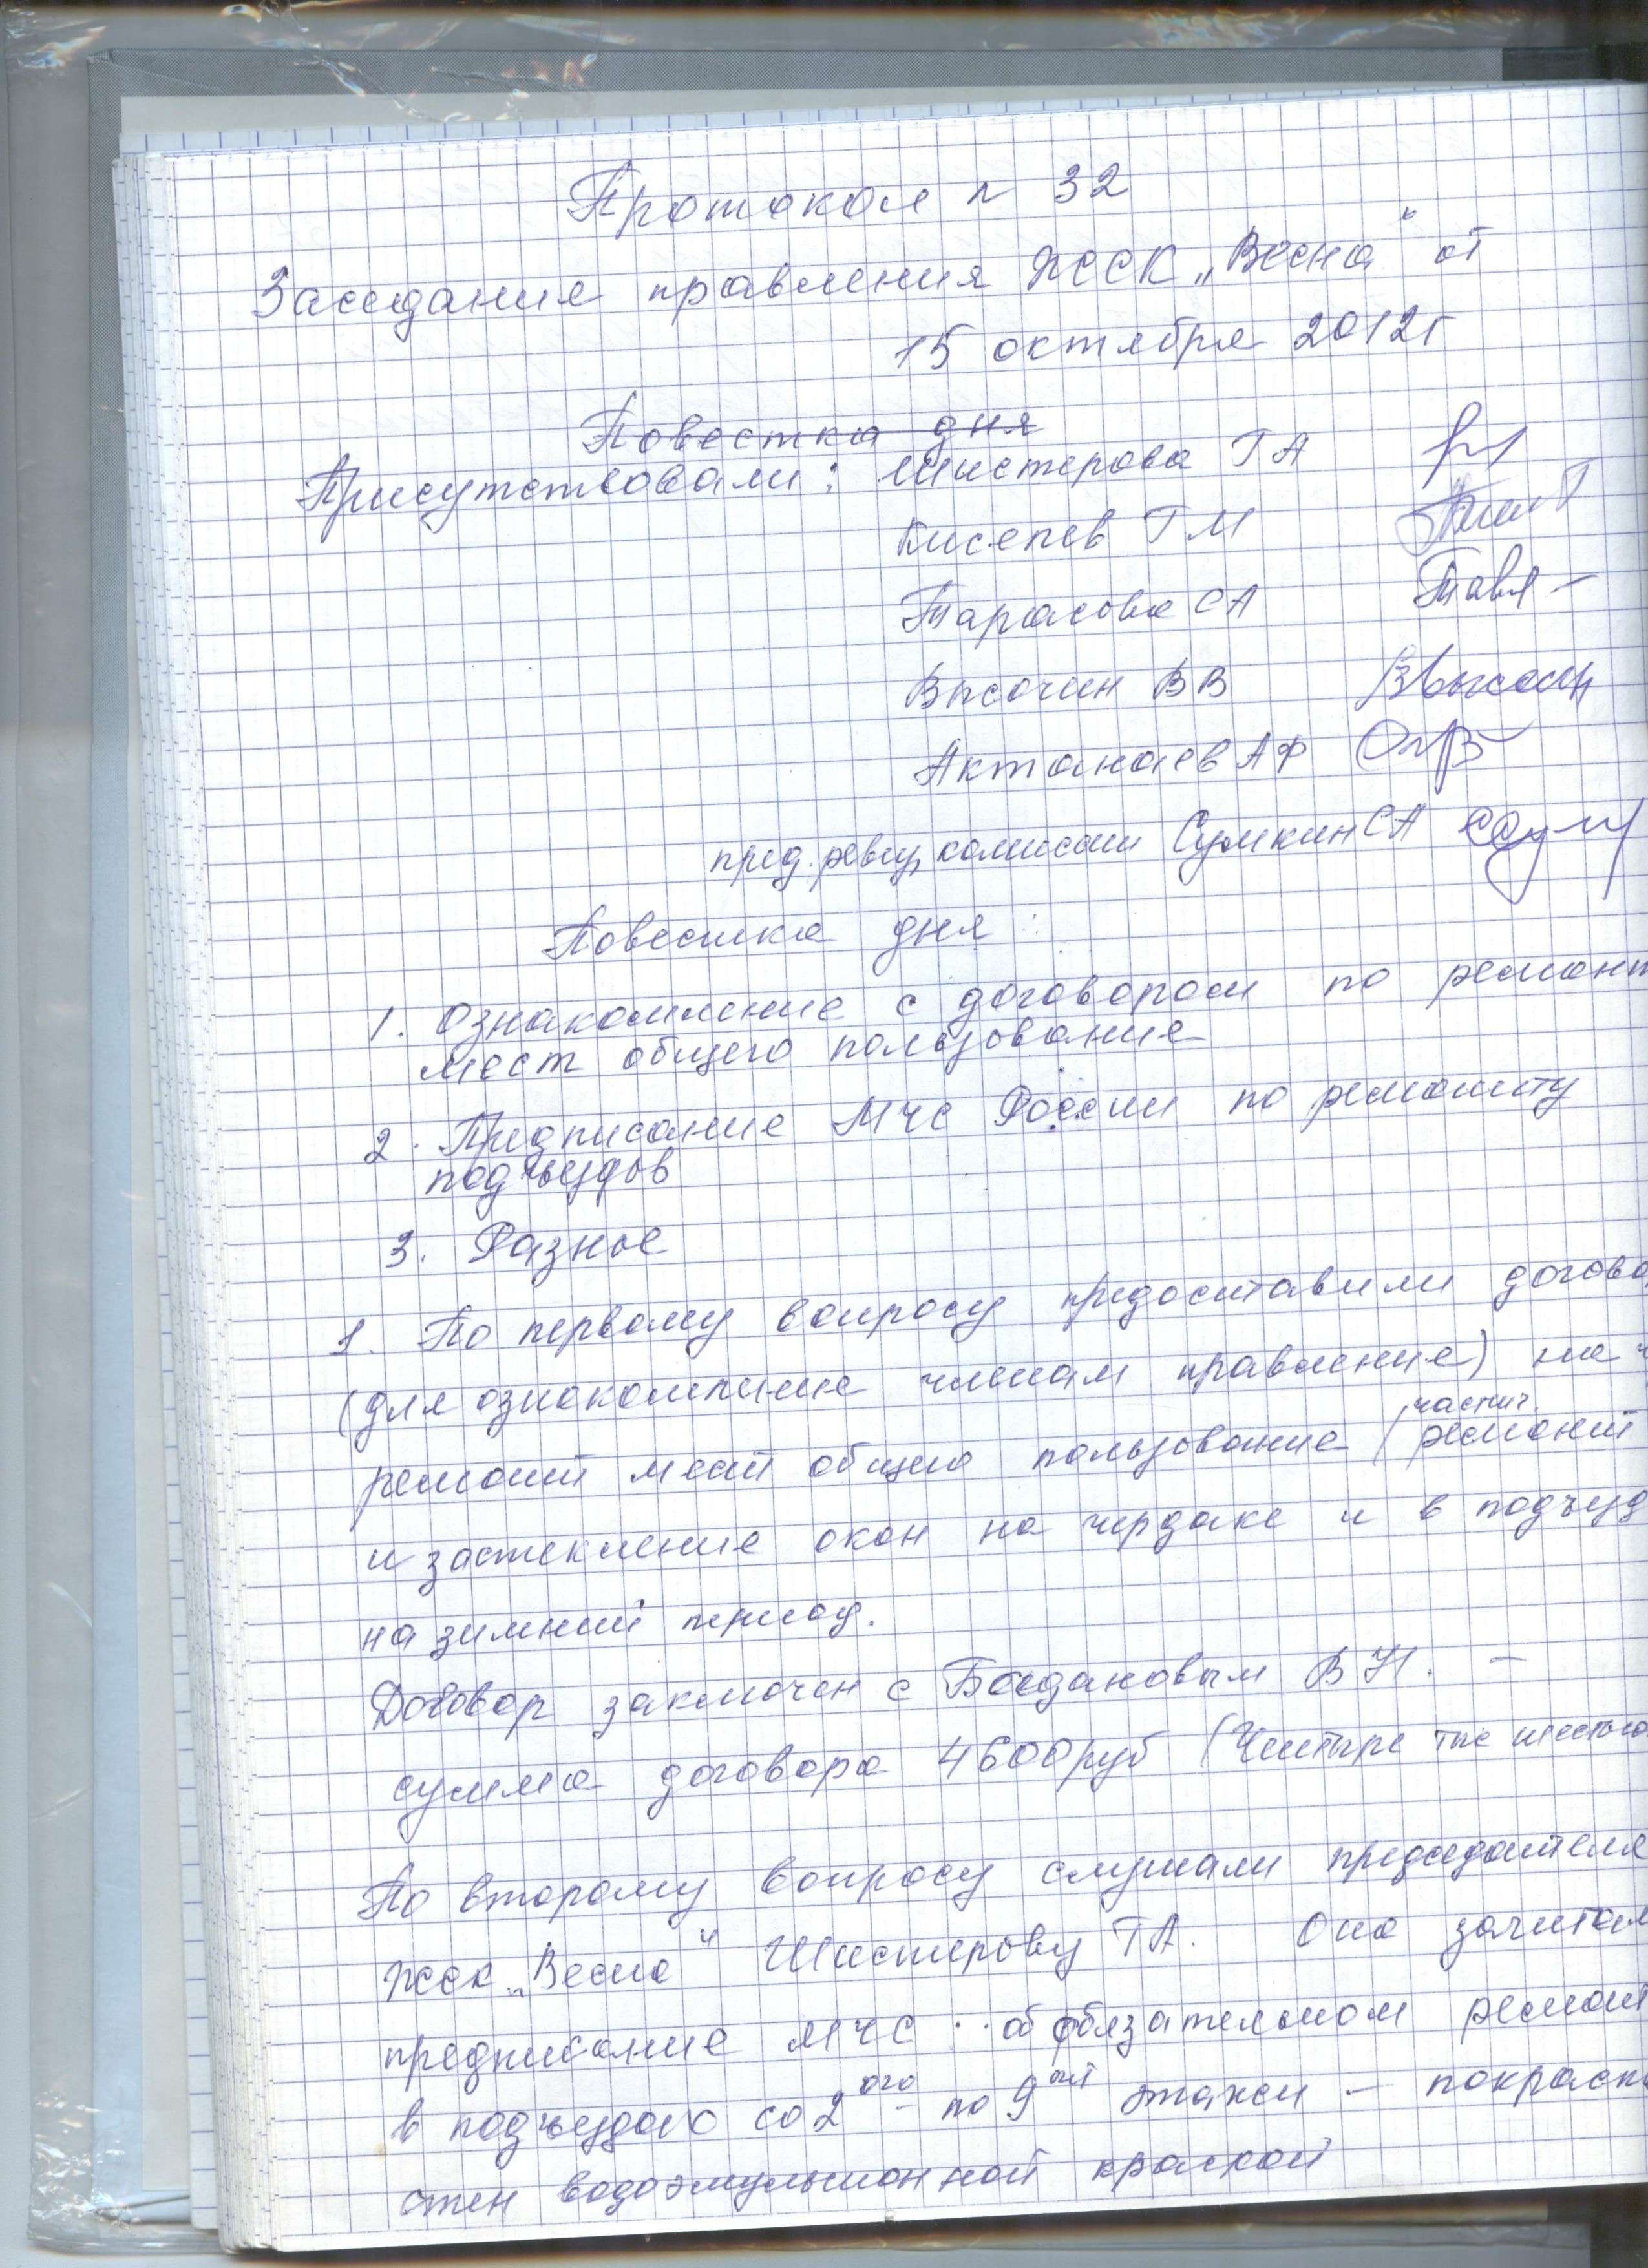 Протокол N 32
Заседание правления ЖССК „Весна" от
15 октября 2012г
Повестка дня
Присутствовали: Шистерова ГА
Киселев ГМ
Тарасова СА
Высочин ВВ
Актанаев АФ
пред. ревиз, комиссии Сумкин СА
Повестка дня:
1. Ознакомление с договором по ремонт
мест общего пользование
2. Предписание МЧС России по ремонту
подъездов
3. Разное
1. По первому вопросу предоставили догово
(для ознокомление членам правление) на
частич.
ремонт мест общего пользование (ремонт
и застекление окон на чердаке и в подъезд
на зимний период.
Договор заключен с Богдановым В Н. –
сумма договора 4600руб (Четыре тыс шестьсо
По второму вопросу слушали председателя
ЖССК „Весна" Шистерову ГА. Она зачитал
предписание МЧС об обязательном ремонт
в подъездах со 2ого – по 9ый этажи – покраск
стен водоэмульсионной краской